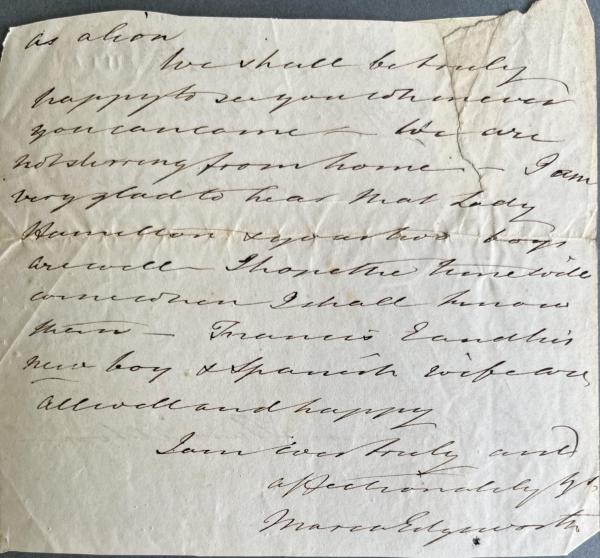 as alion
We shall be truly
happy to see you whenever
you can come – We are
not stirring from home – I am
very glad to hear that Lady
Hamilton & your two boys
are well – I hope the time will
come when I shall know
them – Francis E and his
new boy & Spanish wife are
all well and happy
I am ever truly and
affectionately yrs
Maria Edgeworth